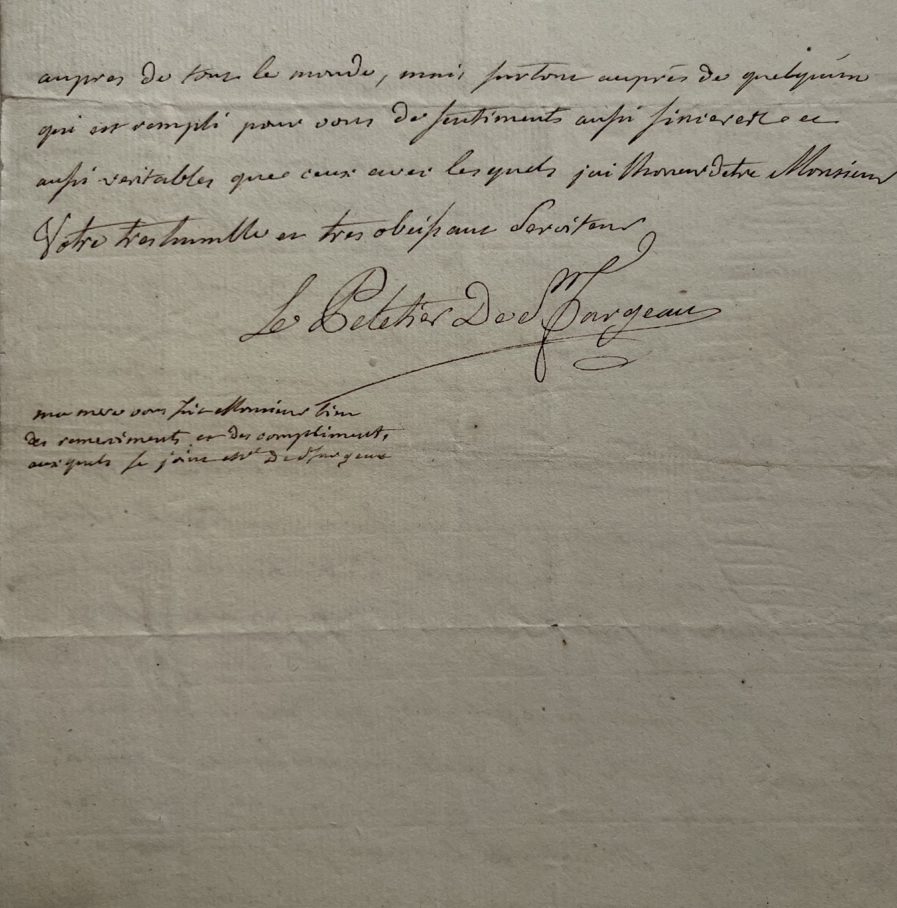 aupres de tout le monde, mais surtout auprès de quelqu'un
qui est rempli pour vous de sentiments aussi sinceres et
aussi veritables que ceux avec lesquels jai lhonneur detre Monsieur
Votre tres humble et tres obeissant Serviteur
Le Peletier De St fargeau
ma mere vous fait Monsieur bien
des remerciments et des compliments
auxquels se joint De St fargeau